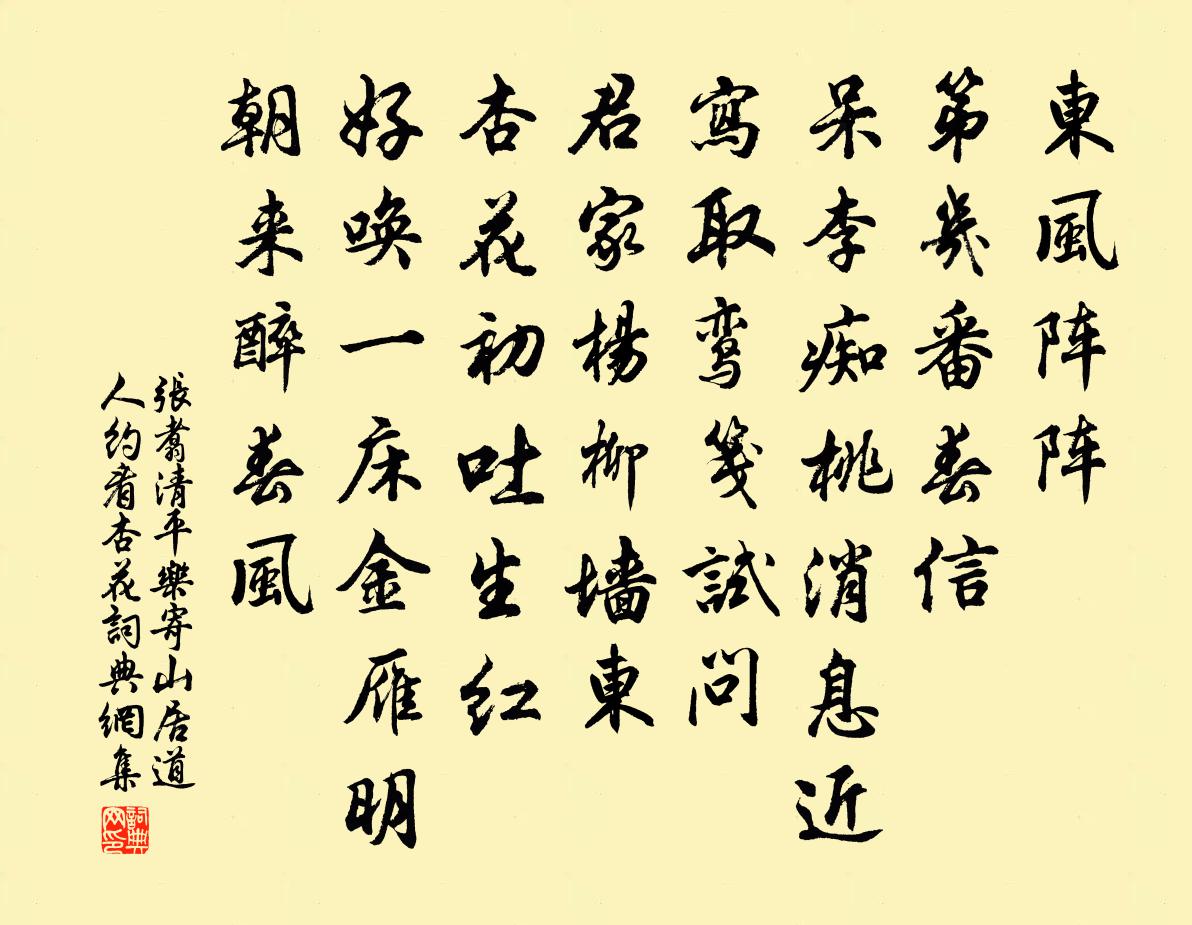 東風阵阵
第幾番春信
呆李痴桃消息近
寫取鸾箋試問
君家楊柳墙東
杏花初吐生红
好唤一床金雁明
朝来醉春風
張翥清平樂寄山居道
人约看杏花詞典網集
詞典
网印